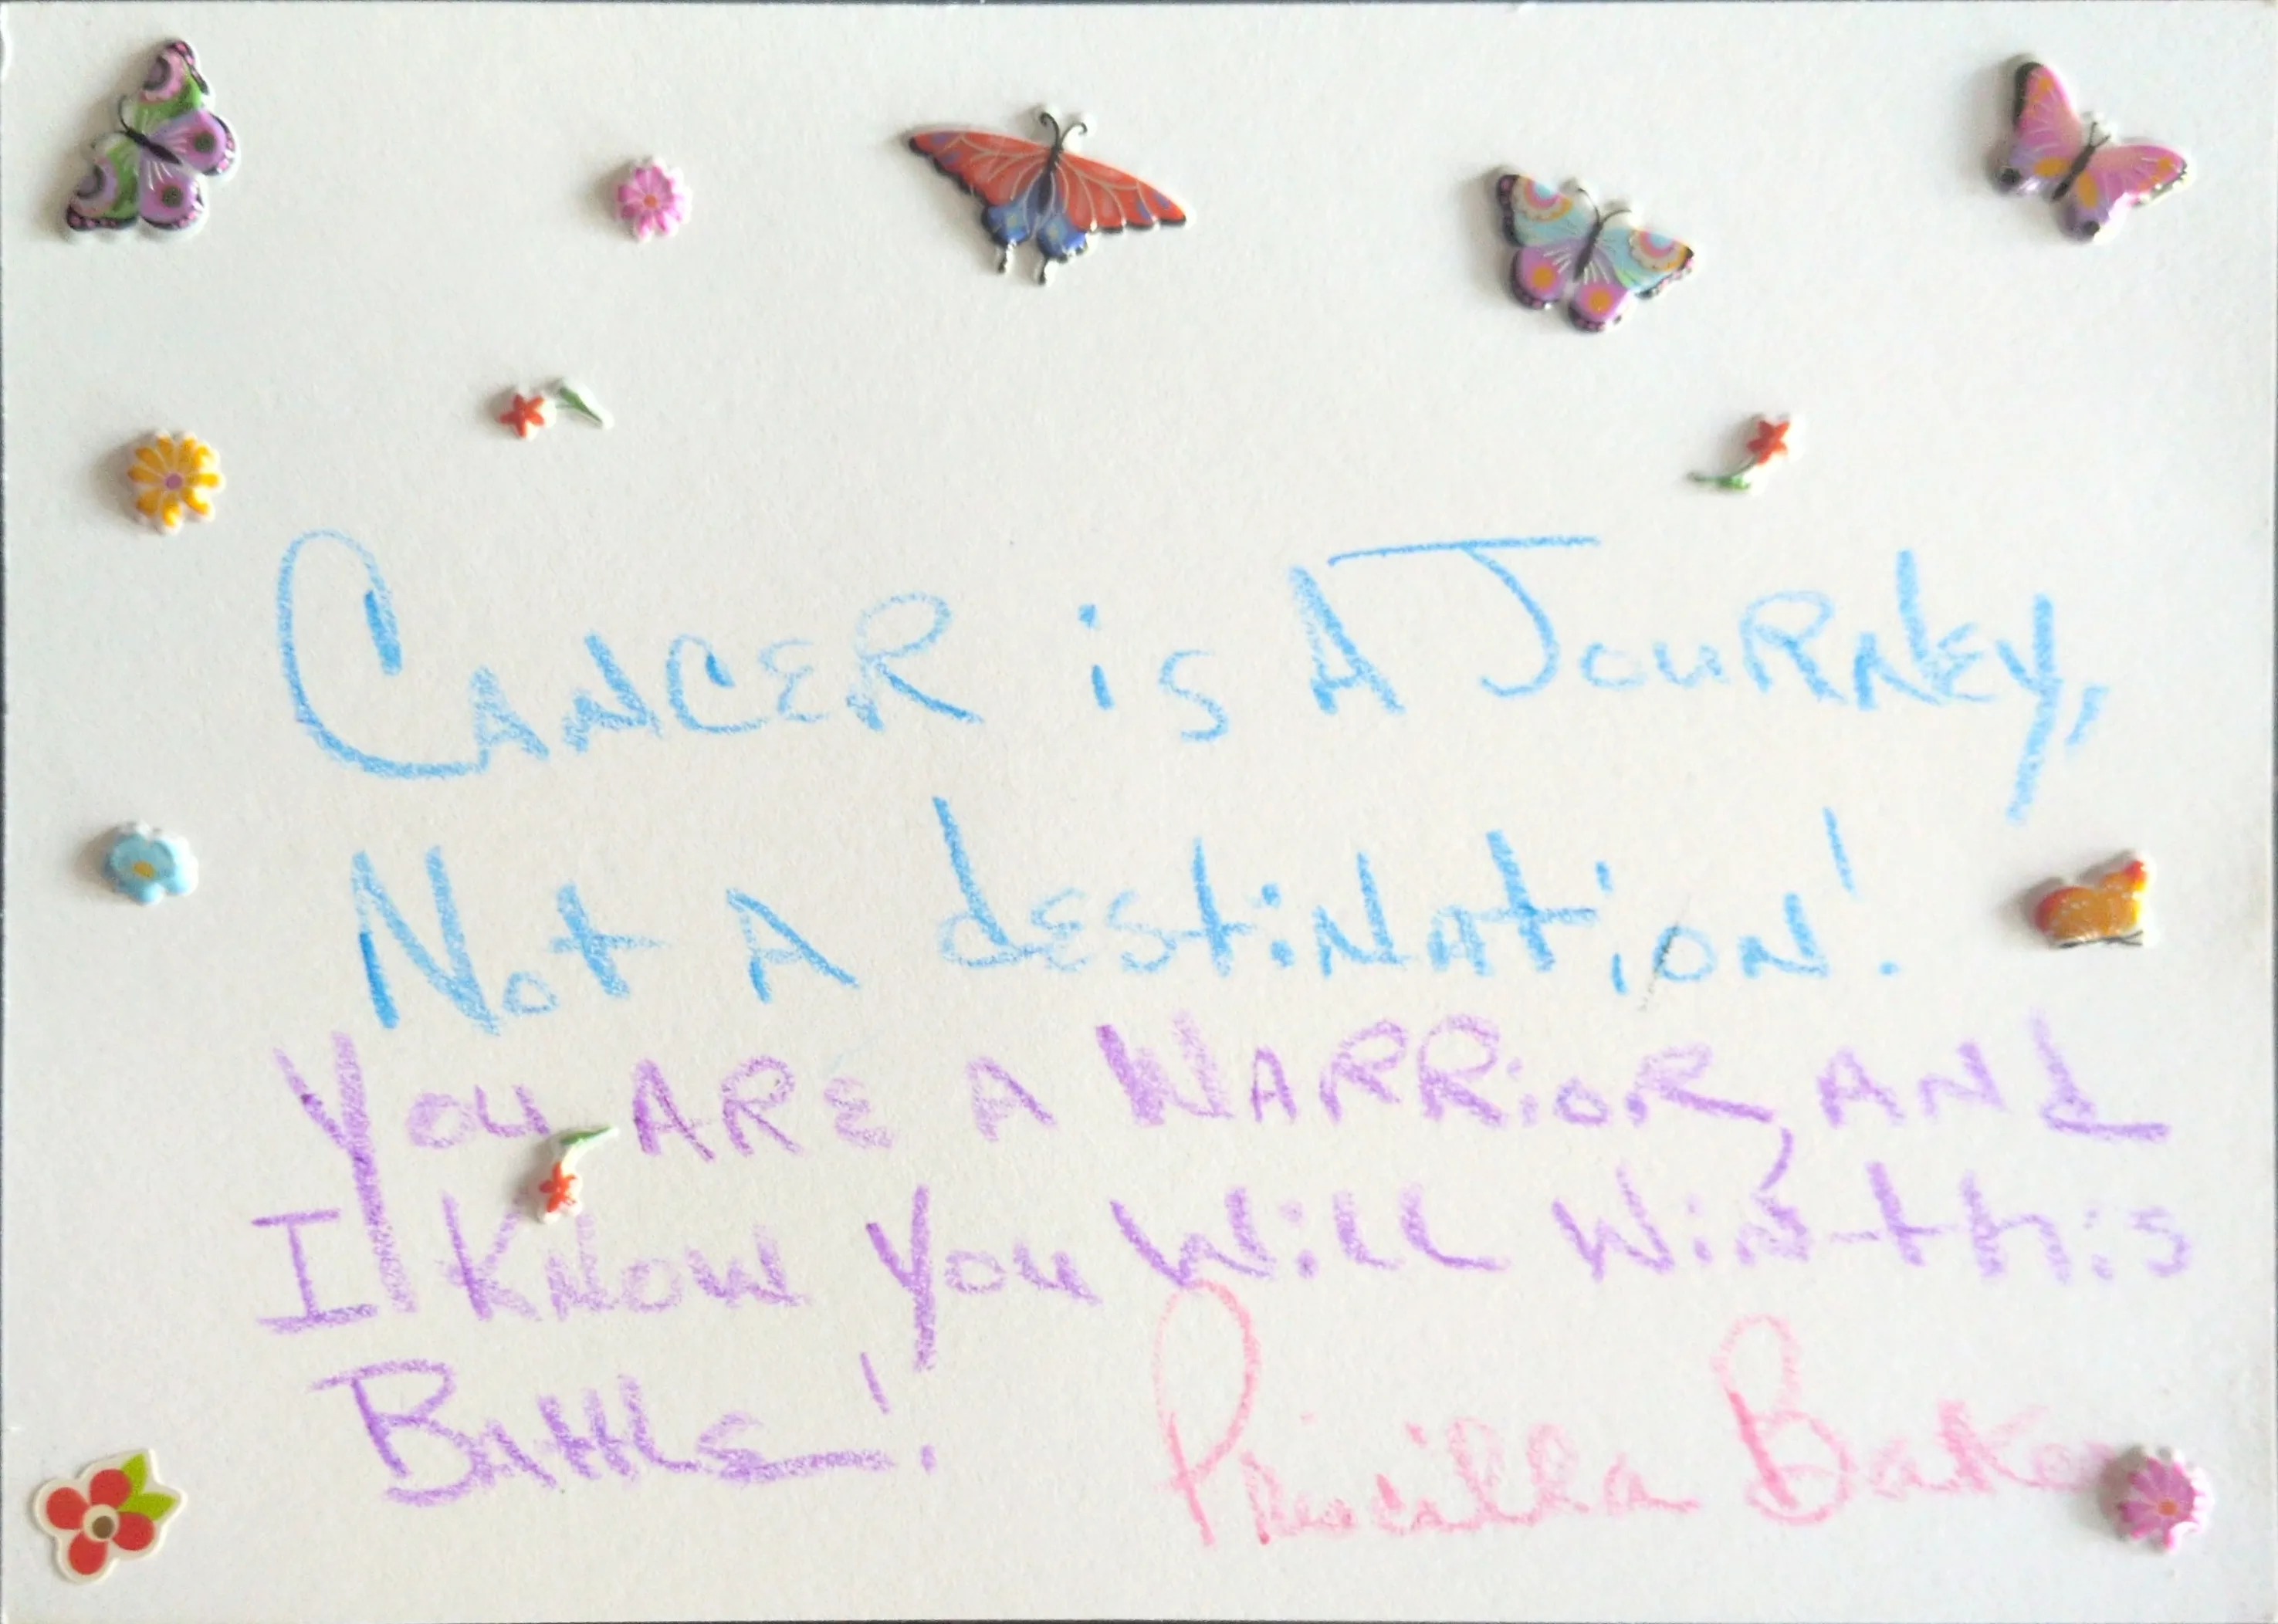 Cancer is A Journey,
Not A destination!
You ARE A WARRioR, AND
I KNOW you Will Win this
Battle!
Priscilla Baker